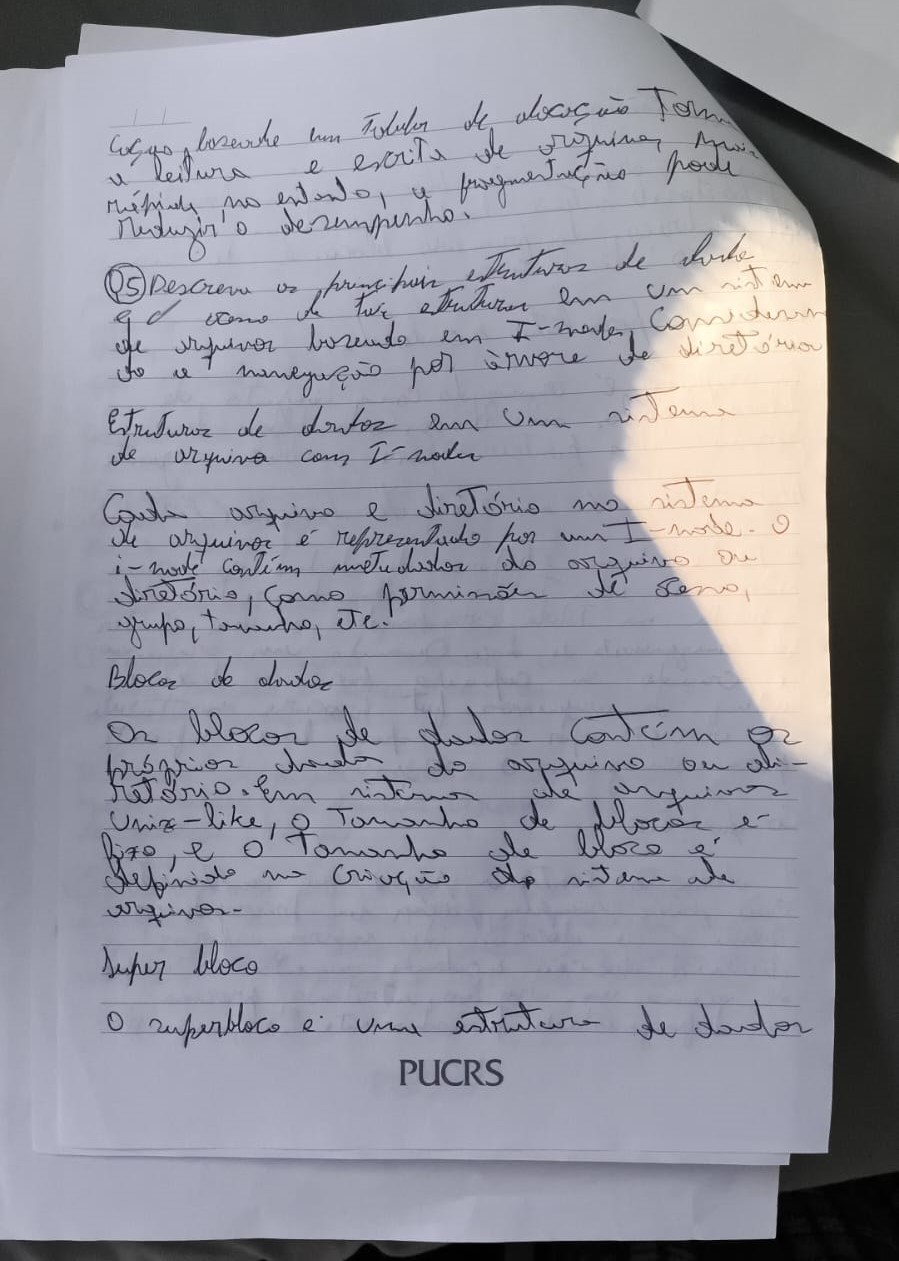 cação baseado em Tabela de alocação Torn
a leitura e escrita de arquivos mais
rápida no entanto, a fragmentação pode
reduzir o desempenho.
Q5 Descreva as principais estruturas de dado
e como de tais estruturas em um sistema
de arquivos baseado em I-nodes, Consideran
do a navegação por árvore de diretórios
Estruturas de dados em um sistema
de arquivo com I-nodes
Cada arquivo e diretório no sistema
de arquivos é representado por um I-node. O
i-node contém metadados do arquivo ou
diretório, como permissões de acesso,
grupo, tamanho, etc.
Blocos de dados
Os blocos de dados contém os
próprios dados do arquivo ou di-
retório. Em sistemas de arquivos
Unix-like, o Tamanho de blocos é
fixo, e o Tamanho de bloco é
definido na criação do sistema de
arquivos.
Super bloco
O superbloco é uma estrutura de dados
PUCRS